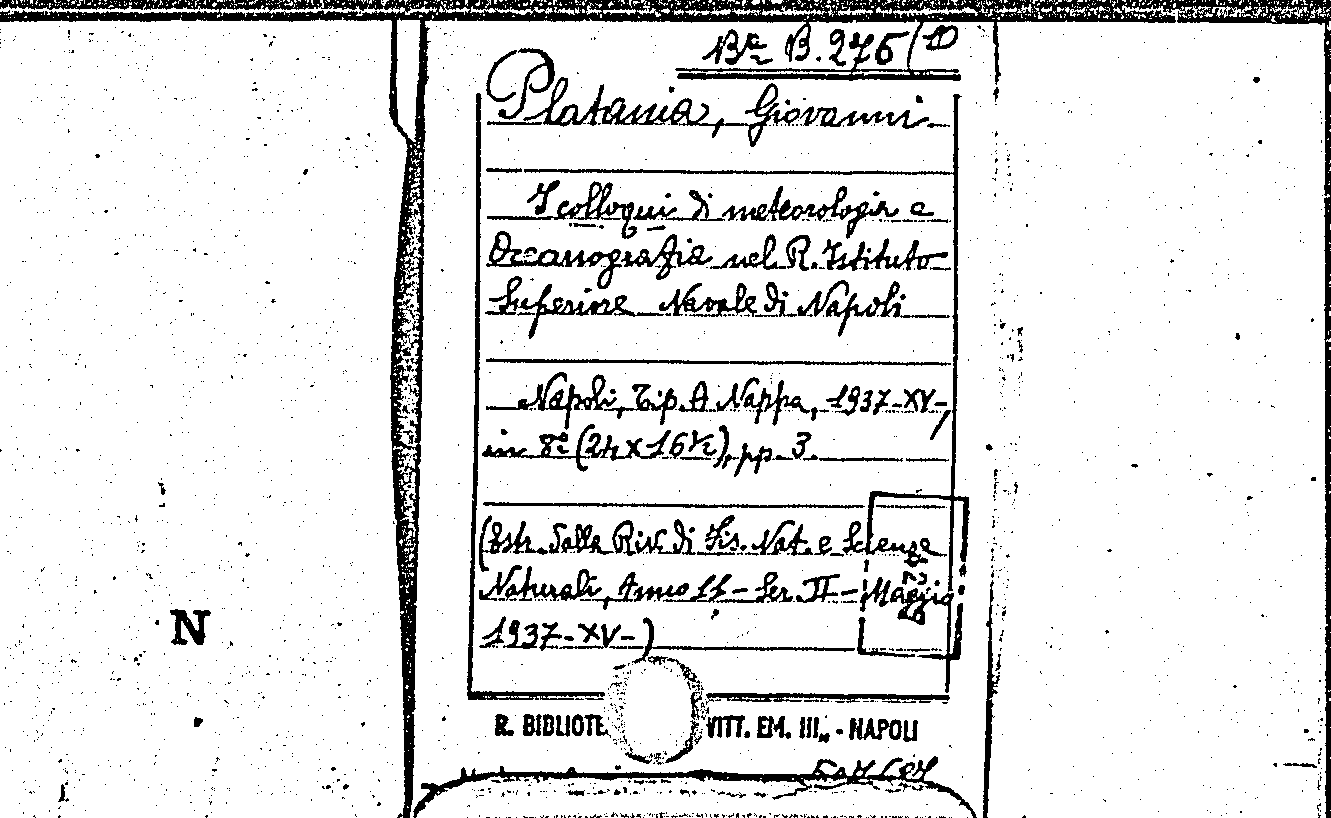 Bc B. 276 (10
Platania, Giovanni
I colloqui di meteorologia e
Oceanografia nel R. Istituto
Superiore Navale di Napoli
Napoli, Tip. A Nappa, 1937-XV-,
in 8º (24 x 16½), pp. 3.
(Estr. dalla Riv. di Fis. Mat. e Scienze
Naturali, Anno 11 - Ser. II - Maggio
1937-XV-)
N
R. BIBLIOTE VITT. EM. III„ - NAPOLI